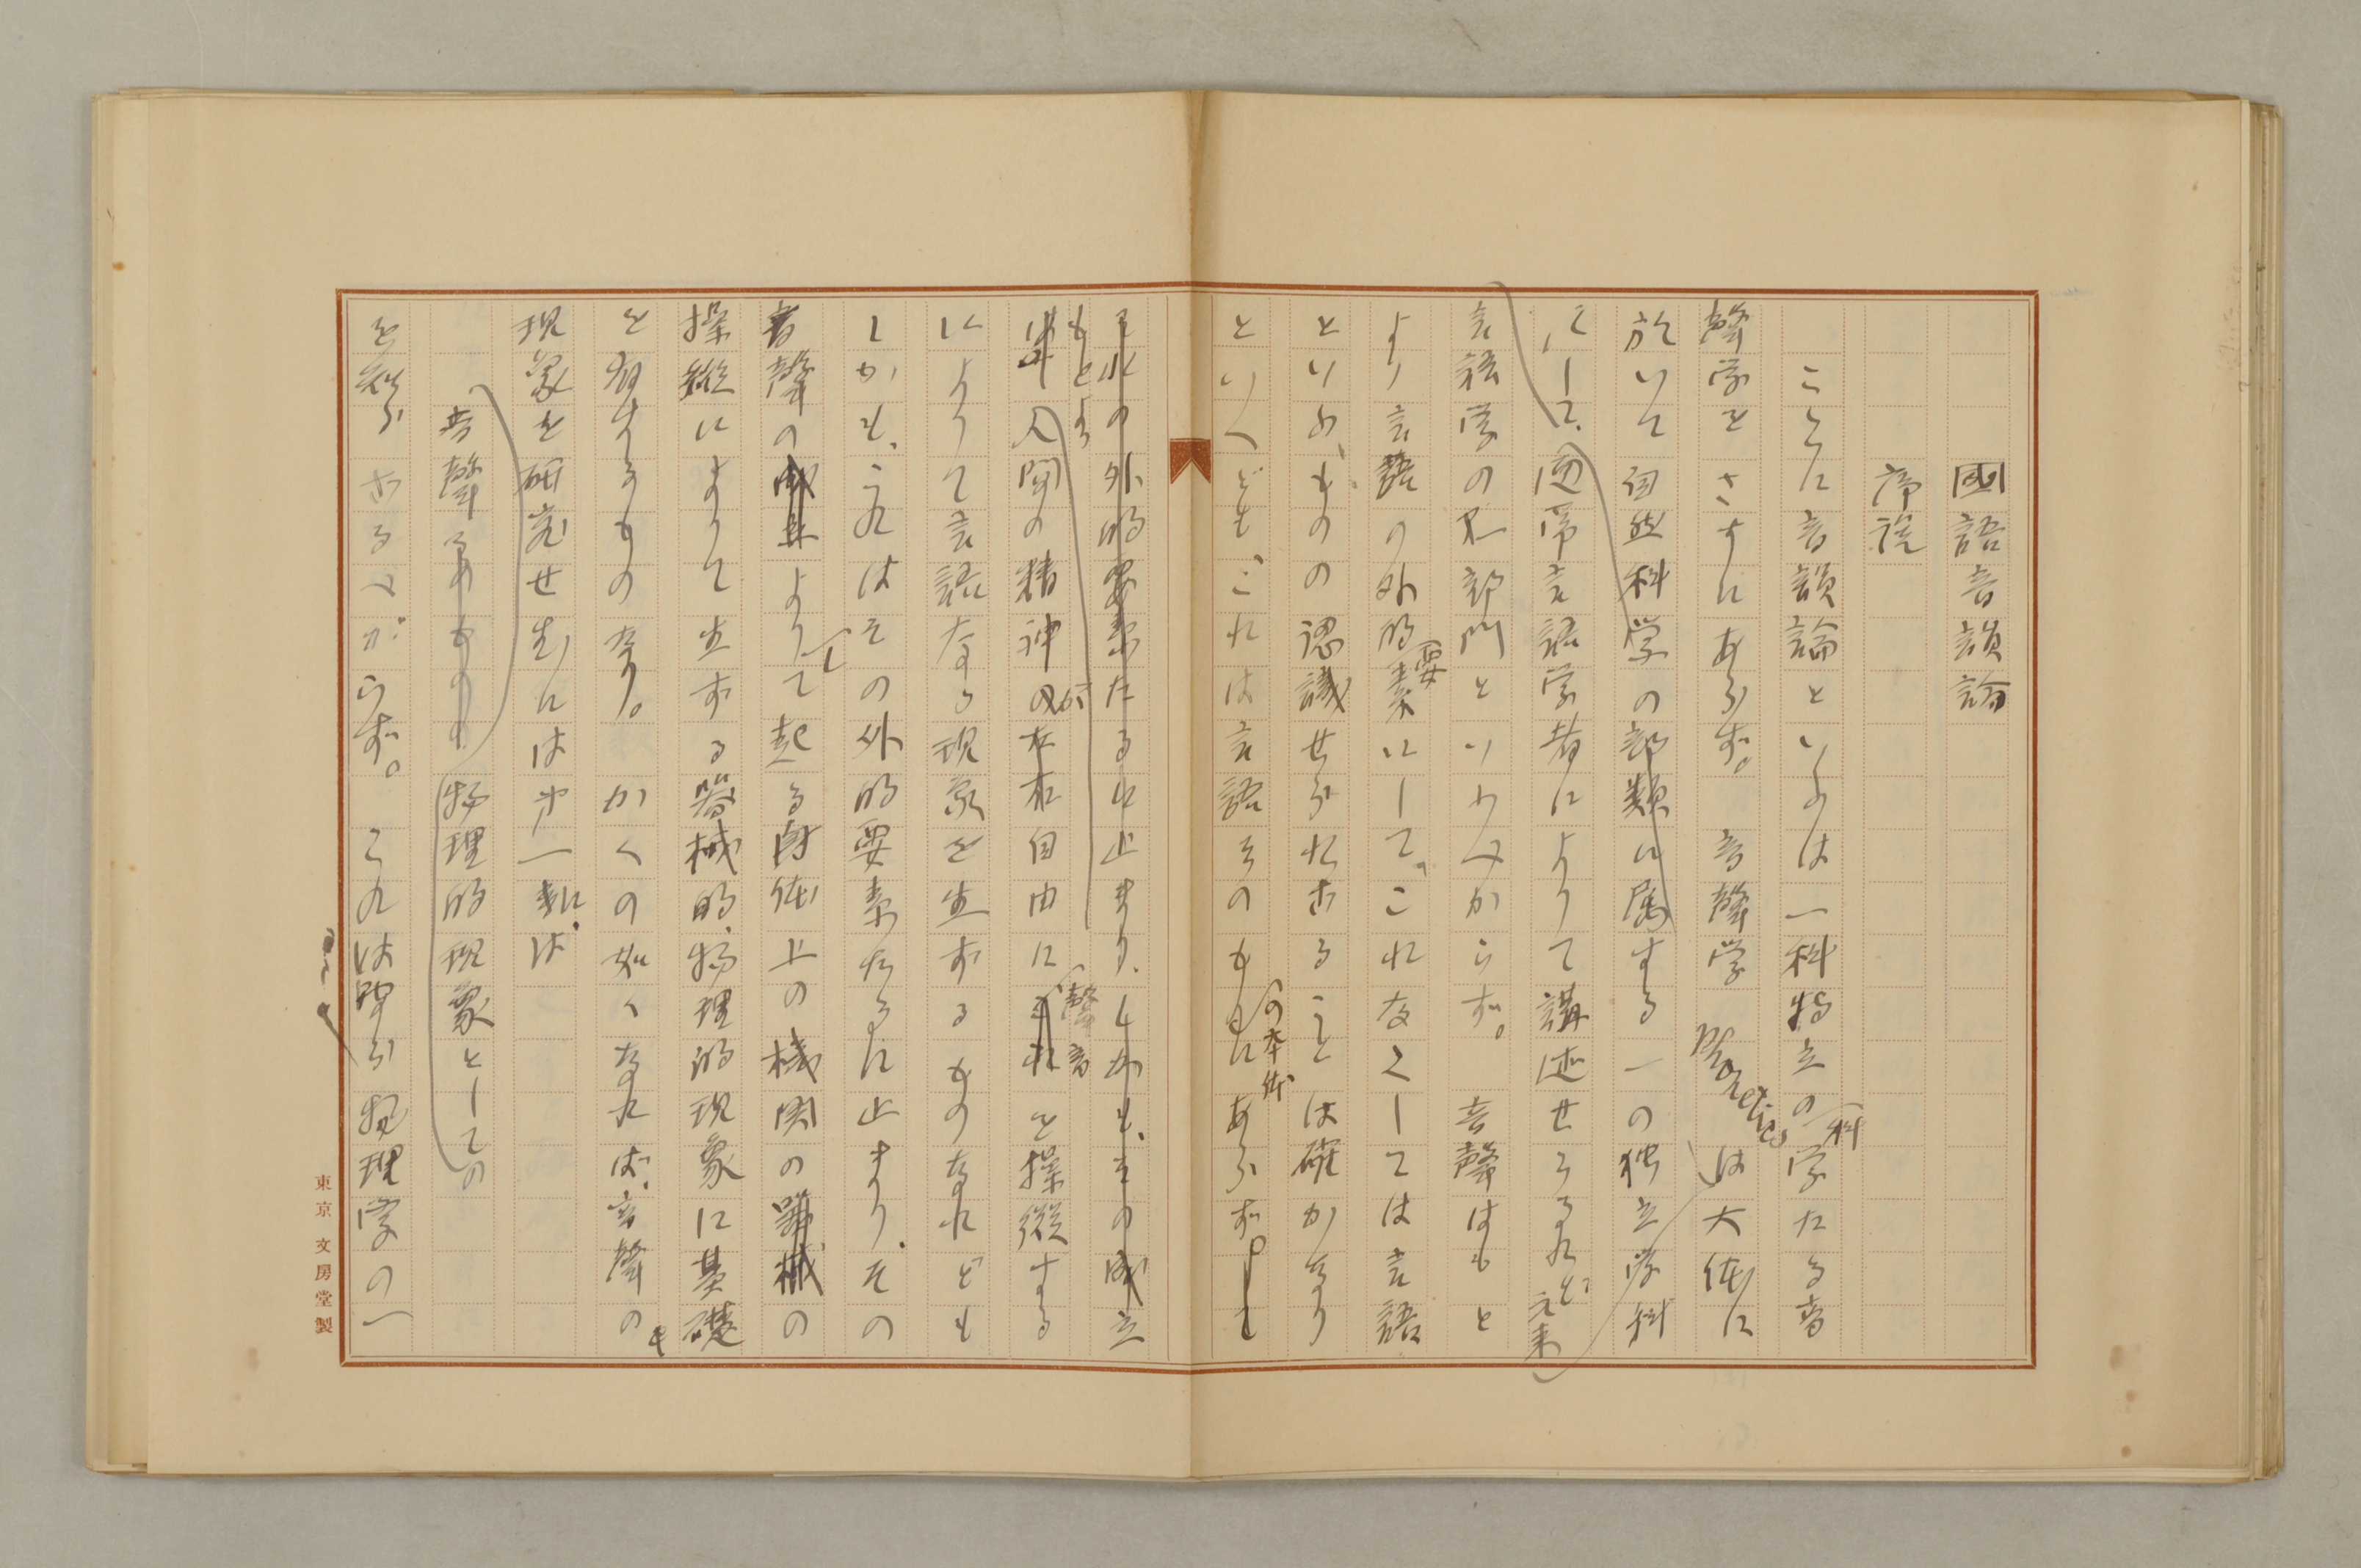 國語音韻論
序説
こゝに音韻論といふのは一科独立の科学たる音
聲学をさすにあらず。音聲学 Phonetics は大体に
於いて自然科学の部類に属する一の独立学科
にして、通常言語学者によりて講述せらるれど、元来
言語学の一部門といふべからず。音聲はもと
より言語の外的要素にして、これなくしては言語
といふものの認識せられざることは確かなり
といへども、これは言語そのものの本体にあらずして
その外的要素たるに止まり、しかも、その成立
もとより人間の精神が自由に聲音を操縦する
によりて言語なる現象を生ずるものなれども
しかも、これはその外的要素たるに止まり、その
音聲のよりて起る身体上の機関の器械の
操縦によりて生ずる器械的、物理的現象に基礎
を有するものなり。かくの如くなれば、音聲の
現象を研究せむには第一に、は
音聲 物理的現象としての
を知らざるべからず。これは即ち物理学の一
東京文房堂製